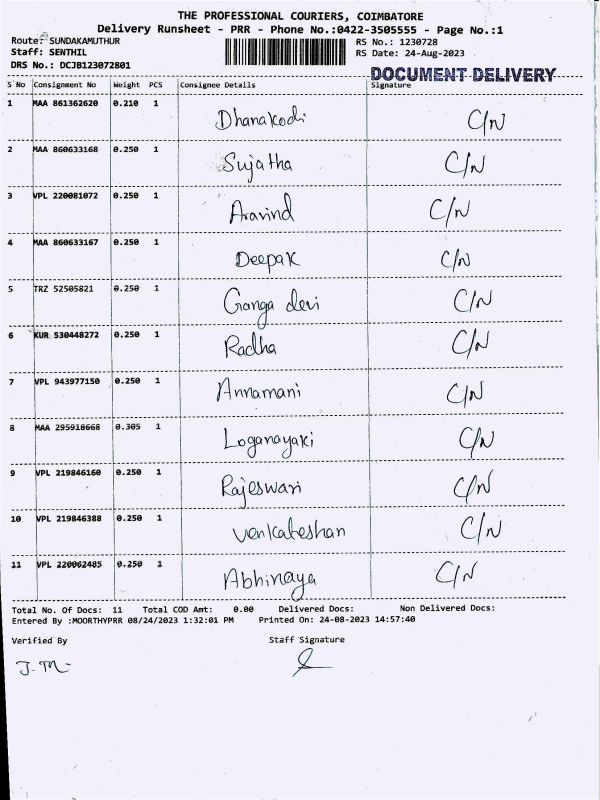 THE PROFESSIONAL COURIERS, COIMBATORE
Delivery Runsheet - PRR - Phone No.:0422-3505555 - Page No.:1
Route: SUNDAKAMUTHUR RS No.: 1230728
Staff: SENTHIL RS Date: 24-Aug-2023
DRS No.: DCJB123072801
DOCUMENT DELIVERY
S No Consignment No Weight PCS Consignee Details Signature
1 MAA 861362620 0.210 1 Dhanakodi C/N
2 MAA 860633168 0.250 1 Sujatha C/N
3 VPL 220081072 0.250 1 Aravind C/N
4 MAA 860633167 0.250 1 Deepak C/N
5 TRZ 52505821 0.250 1 Ganga devi C/N
6 KUR 530448272 0.250 1 Radha C/N
7 VPL 943977150 0.250 1 Annamani C/N
8 MAA 295918668 0.305 1 Loganayaki C/N
9 VPL 219846160 0.250 1 Rajeswari C/N
10 VPL 219846388 0.250 1 Venkateshan C/N
11 VPL 220062485 0.250 1 Abhinaya C/N
Total No. Of Docs: 11 Total COD Amt: 0.00 Delivered Docs: Non Delivered Docs:
Entered By :MOORTHYPRR 08/24/2023 1:32:01 PM Printed On: 24-08-2023 14:57:40
Verified By Staff Signature
J. M